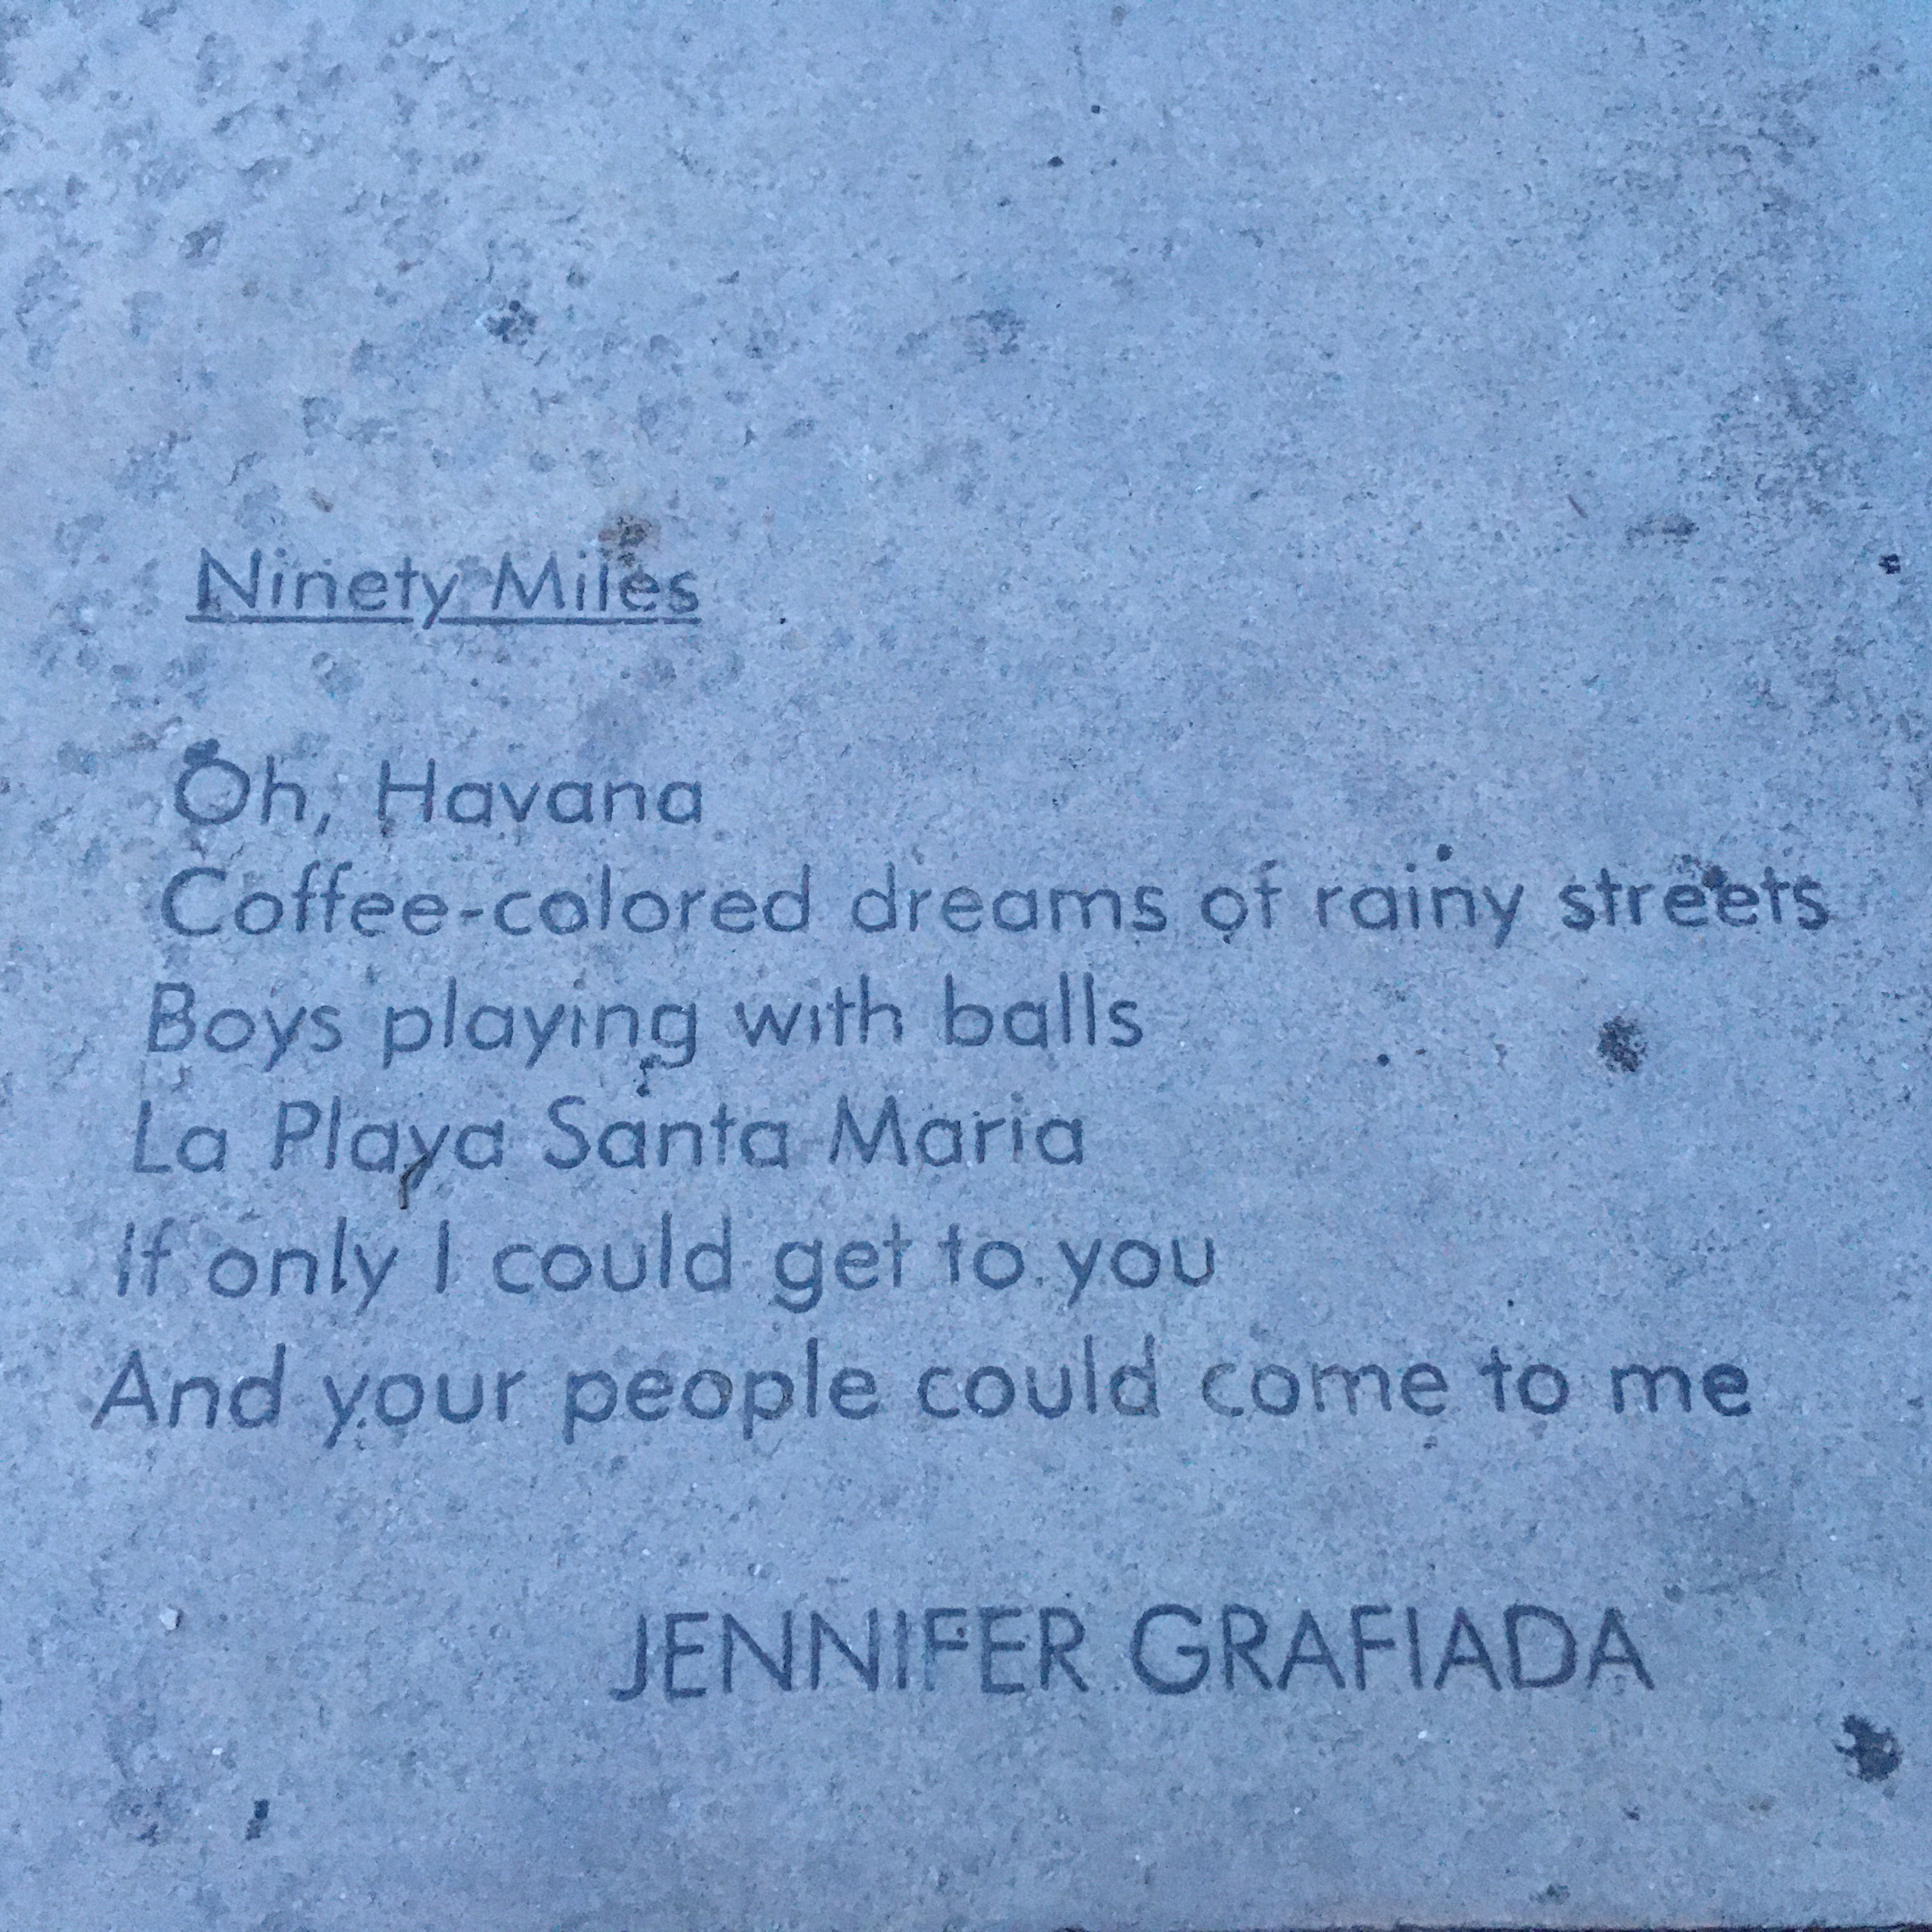 Ninety Miles
Oh, Havana
Coffee-colored dreams of rainy streets
Boys playing with balls
La Playa Santa Maria
If only I could get to you
And your people could come to me
JENNIFER GRAFIADA